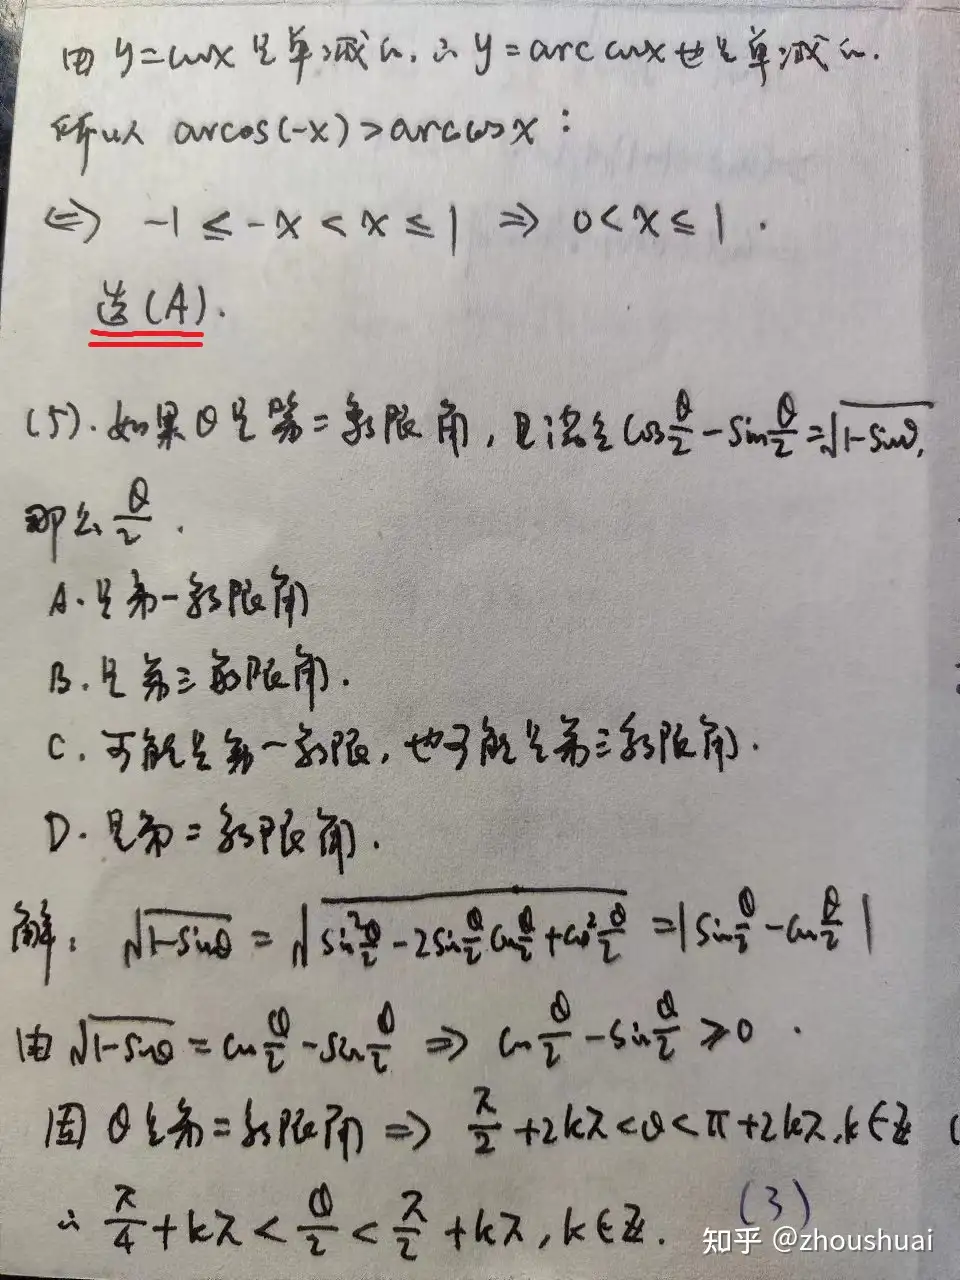 因 y=cosx 是单减的,∴ y=arc cosx 也是单减的.
所以 arcos(-x)>arccosx:
⇔ -1≤-x<x≤1 ⇒ 0<x≤1.
选(A).
(5).如果θ是第二象限角,且满足 cos θ/2 - sin θ/2 = √(1-sinθ),
那么 θ/2 .
A.是第一象限角
B.是第三象限角.
C.可能是第一象限,也可能是第三象限角.
D.是第二象限角.
解: √(1-sinθ) = √(sin² θ/2 - 2sin θ/2 cos θ/2 + cos² θ/2) = |sin θ/2 - cos θ/2|
由 √(1-sinθ) = cos θ/2 - sin θ/2 ⇒ cos θ/2 - sin θ/2 ≥0.
因 θ是第二象限角 ⇒ π/2 + 2kπ<θ<π+2kπ,k∈Z
∴ π/4 + kπ < θ/2 < π/2 + kπ, k∈Z.
(3)
知乎 @zhoushuai